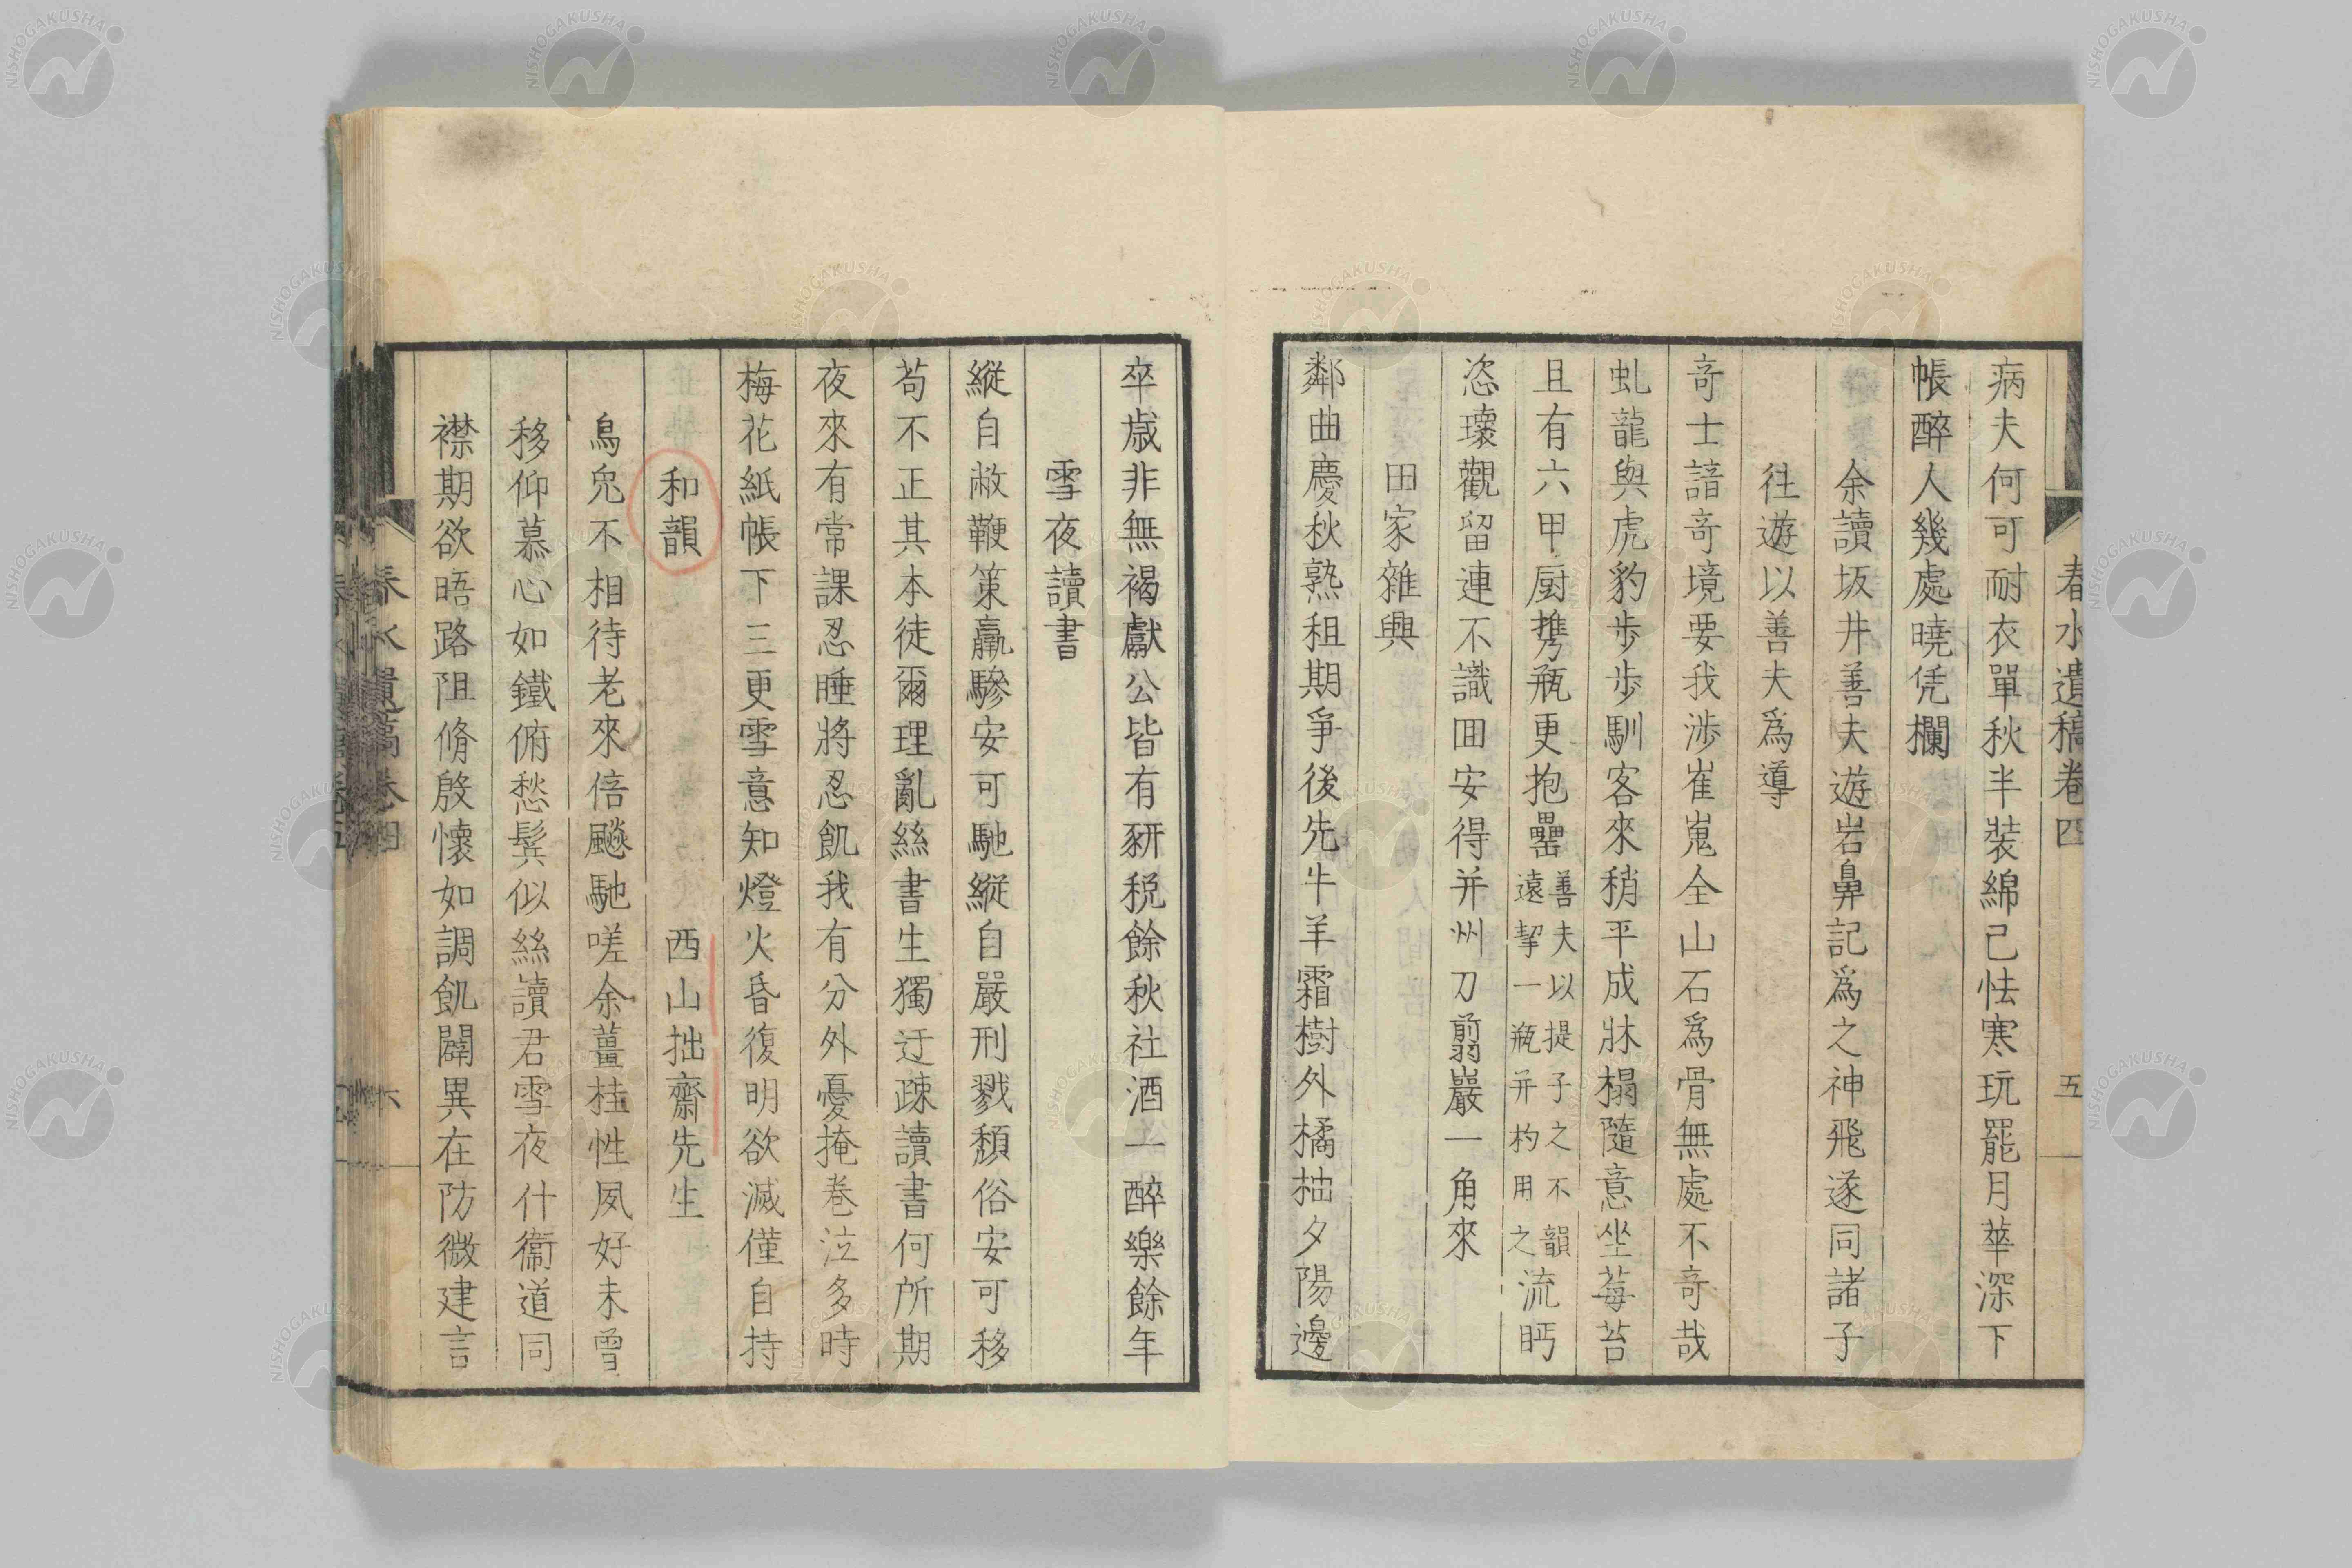 春水遺稿卷四
五
病夫何可耐衣單秋半裝綿已怯寒玩罷月華深下
帳醉人幾處曉凭欄
余讀坂井善夫遊岩鼻記爲之神飛遂同諸子
往遊以善夫爲導
奇士諳奇境要我渉崔嵬全山石爲骨無處不奇哉
虬龍與虎豹步步馴客來稍平成牀榻隨意坐莓苔
且有六甲厨携瓶更抱罍善夫以提子之不韻遠挈一瓶并杓用之流眄
恣瓌觀留連不識回安得并州刀翦巖一角來
田家雜興
鄰曲慶秋熟租期爭後先牛羊霜樹外橘柚夕陽邊
卒歳非無褐獻公皆有豣税餘秋社酒一醉樂餘年
雪夜讀書
縱自敝鞭策羸驂安可馳縱自嚴刑戮頽俗安可移
苟不正其本徒爾理亂絲書生獨迂疎讀書何所期
夜來有常課忍睡將忍飢我有分外憂掩卷泣多時
梅花紙帳下三更雪意知燈火昏復明欲滅僅自持
和韻 西山拙齋先生
烏兔不相待老來倍飈馳嗟余薑桂性夙好未曾
移仰慕心如鐵俯愁鬂似絲讀君雪夜什衞道同
襟期欲晤路阻脩殷懷如調飢闢異在防微建言
春水遺稿卷四
六